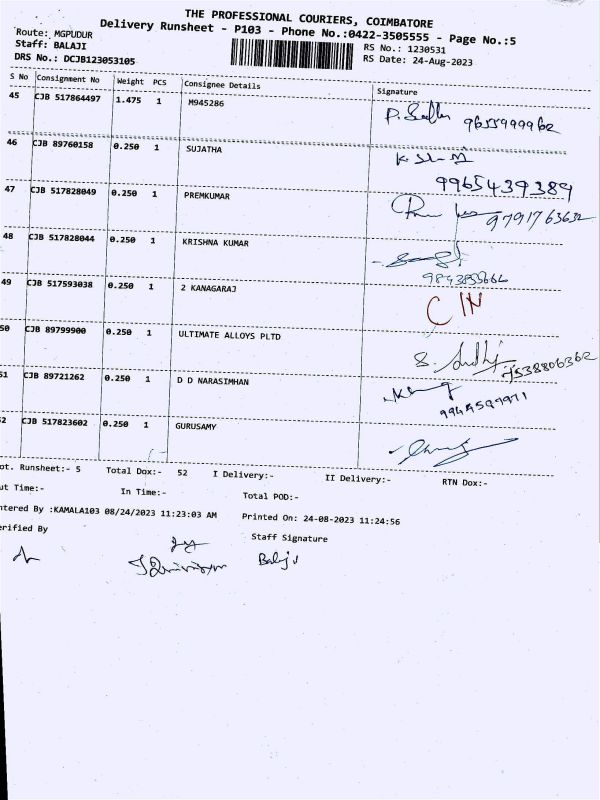 THE PROFESSIONAL COURIERS, COIMBATORE
Delivery Runsheet - P103 - Phone No.:0422-3505555 - Page No.:5
Route: MGPUDUR
Staff: BALAJI
RS No.: 1230531
DRS No.: DCJB123053105
RS Date: 24-Aug-2023
S No Consignment No Weight PCS Consignee Details Signature
45 CJB 517864497 1.475 1 M945286
9655999962
46 CJB 89760158 0.250 1 SUJATHA
9965439389
47 CJB 517828049 0.250 1 PREMKUMAR
9791763632
48 CJB 517828044 0.250 1 KRISHNA KUMAR
49 CJB 517593038 0.250 1 2 KANAGARAJ
C IN
50 CJB 89799900 0.250 1 ULTIMATE ALLOYS PLTD
7538806362
51 CJB 89721262 0.250 1 D D NARASIMHAN
52 CJB 517823602 0.250 1 GURUSAMY
ot. Runsheet:- 5 Total Dox:- 52 I Delivery:- II Delivery:- RTN Dox:-
ut Time:- In Time:- Total POD:-
ntered By :KAMALA103 08/24/2023 11:23:03 AM Printed On: 24-08-2023 11:24:56
erified By Staff Signature
Balaji